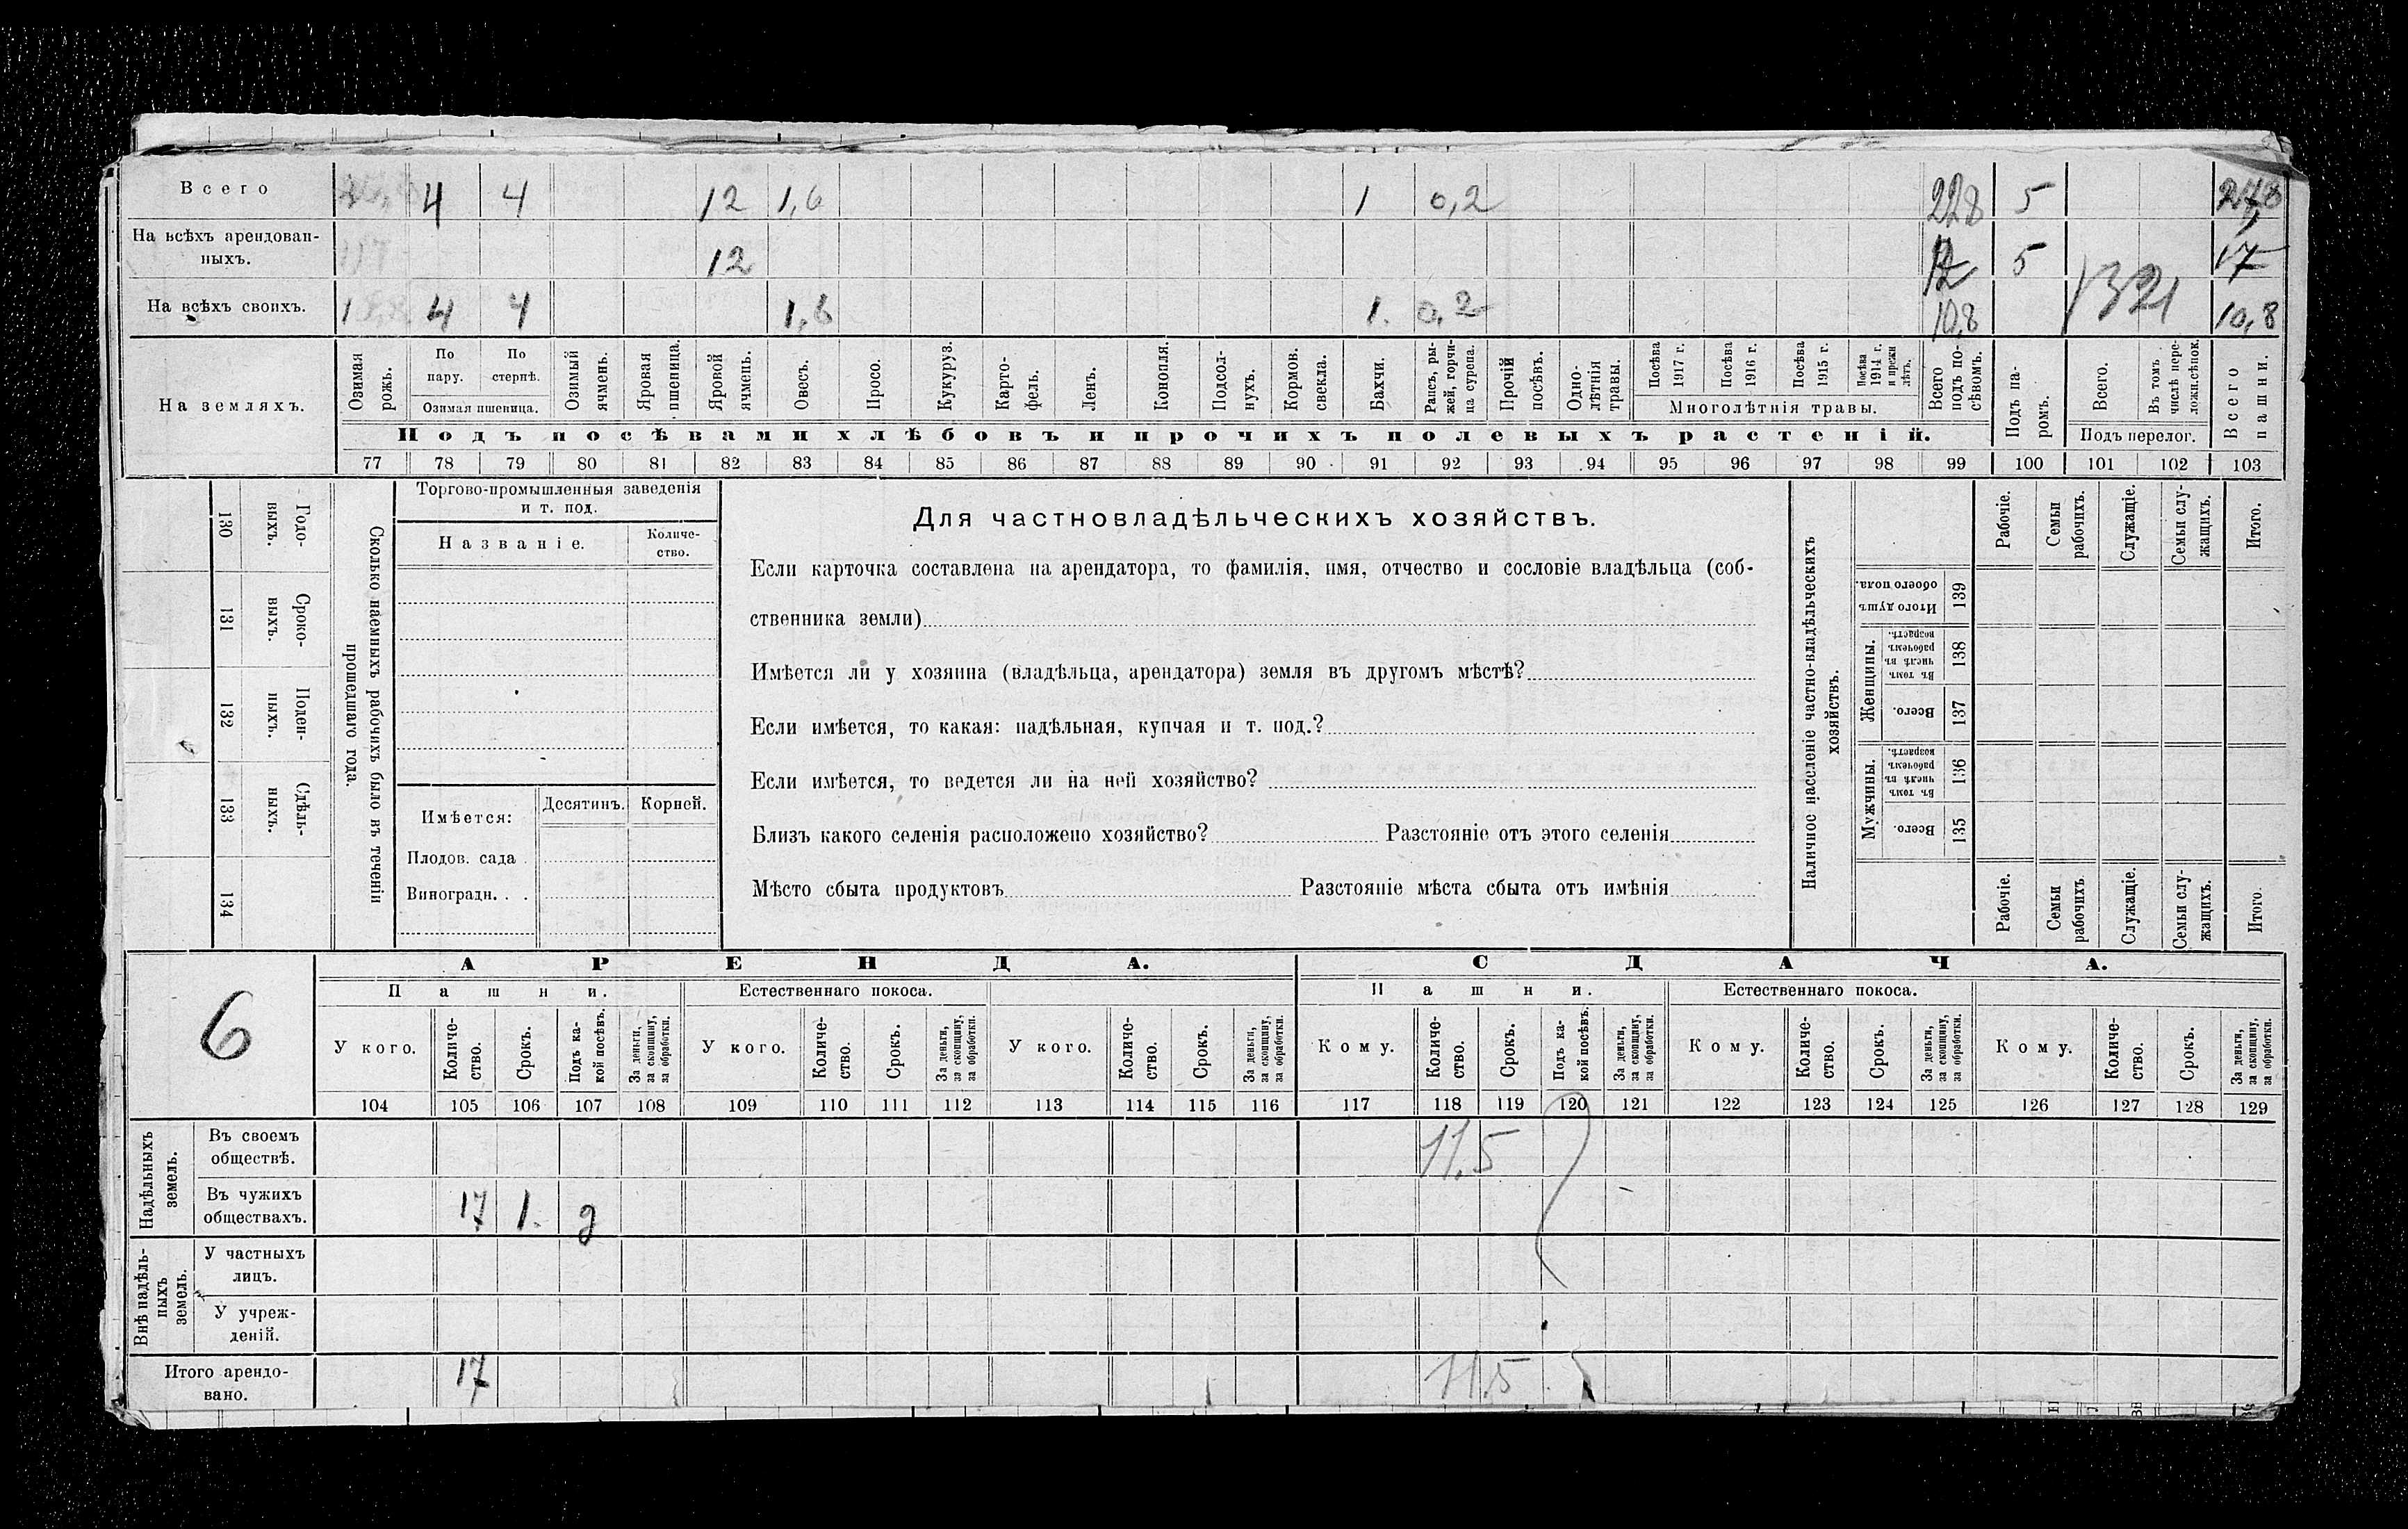 Всего 4 4 12 1,6 1 0,2 22,8 5 27,8
На всѣхъ арендован-
ныхъ. 12 12 5 17
На всѣхъ своихъ. 4 4 1,6 1. 0,2 10,8 1321 10,8
На земляхъ.
Озимая рожь.
По пару.
По стернѣ.
Озимая пшеница.
Озимый ячмень.
Яровая пшеница.
Яровой ячмень.
Овесъ.
Просо.
Кукуруз.
Карто-
фель.
Ленъ.
Конопля.
Подсол-
нухъ.
Кормов.
свекла.
Бахчи.
Рапсъ, ры-
жей, горчи-
ца сурепа.
Прочій
посѣвъ.
Одно-
лѣтнія
травы.
Посѣва
1917 г.
Посѣва
1916 г.
Посѣва
1915 г.
Посѣва
1914 г.
и прежн
лѣтъ.
Многолѣтнія травы.
Всего
подъ по-
сѣвомъ.
Подъ па-
ромъ.
Всего.
Въ томъ
числѣ пере-
ложн.сѣнок.
Подъ перелог.
Всего
пашни.
Подъ посѣвами хлѣбовъ и прочихъ полевыхъ растеній.
77 78 79 80 81 82 83 84 85 86 87 88 89 90 91 92 93 94 95 96 97 98 99 100 101 102 103
Годо-
выхъ.
130
Сроко-
выхъ.
131
Поден-
ныхъ.
132
Сдѣль-
ныхъ.
133
134
Сколько наемныхъ рабочихъ было въ теченіи
прошедшаго года.
Торгово-промышленныя заведенія
и т. под.
Названіе.
Количе-
ство.
Имѣется:
Десятинъ. Корней.
Плодов. сада .
Виноградн. . .
Для частновладѣльческихъ хозяйствъ.
Если карточка составлена на арендатора, то фамилія, имя, отчество и сословіе владѣльца (соб-
ственника земли)
Имѣется ли у хозяина (владѣльца, арендатора) земля въ другомъ мѣстѣ?
Если имѣется, то какая: надѣльная, купчая и т. под.?
Если имѣется, то ведется ли на ней хозяйство?
Близъ какого селенія расположено хозяйство? Разстояніе отъ этого селенія
Мѣсто сбыта продуктовъ Разстояніе мѣста сбыта отъ имѣнія
Наличное населеніе частно-владѣльческихъ
хозяйствъ.
Рабочіе.
Семьи
рабочихъ.
Служащіе.
Семьи слу-
жащихъ.
Итого.
Итого душъ
обоего пола.
139
Женщины.
Въ томъ
числѣ въ
рабочемъ
возрастѣ.
138
Всего.
137
Мужчины.
Въ томъ
числѣ въ
рабочемъ
возрастѣ.
136
Всего.
135
Рабочіе.
Семьи
рабочихъ
Служащіе.
Семьи слу-
жащихъ.
Итого
6
АРЕНДА. СДАЧА.
Пашни. Естественнаго покоса. Пашни. Естественнаго покоса.
У кого.
Количе-
ство.
Срокъ.
Подъ ка-
кой посѣвъ.
За деньги,
за скопщину,
за обработки.
У кого.
Количе-
ство.
Срокъ.
За деньги,
за скопщину,
за обработки.
У кого.
Количе-
ство.
Срокъ.
За деньги,
за скопщину,
за обработки.
Кому.
Количе-
ство.
Срокъ.
Подъ ка-
кой посѣвъ.
За деньги,
за скопщину,
за обработки.
Кому.
Количе-
ство.
Срокъ.
За деньги,
за скопщину,
за обработки.
Кому.
Количе-
ство.
Срокъ.
За деньги,
за скопщину,
за обработки.
104 105 106 107 108 109 110 111 112 113 114 115 116 117 118 119 120 121 122 123 124 125 126 127 128 129
Надѣльныхъ
земель.
Въ своемъ
обществѣ. 11,5
Въ чужихъ
обществахъ. 17 1. д
Внѣ надѣль-
ныхъ
земель.
У частныхъ
лицъ.
У учреж-
деній.
Итого арендо-
вано. 17 11,5